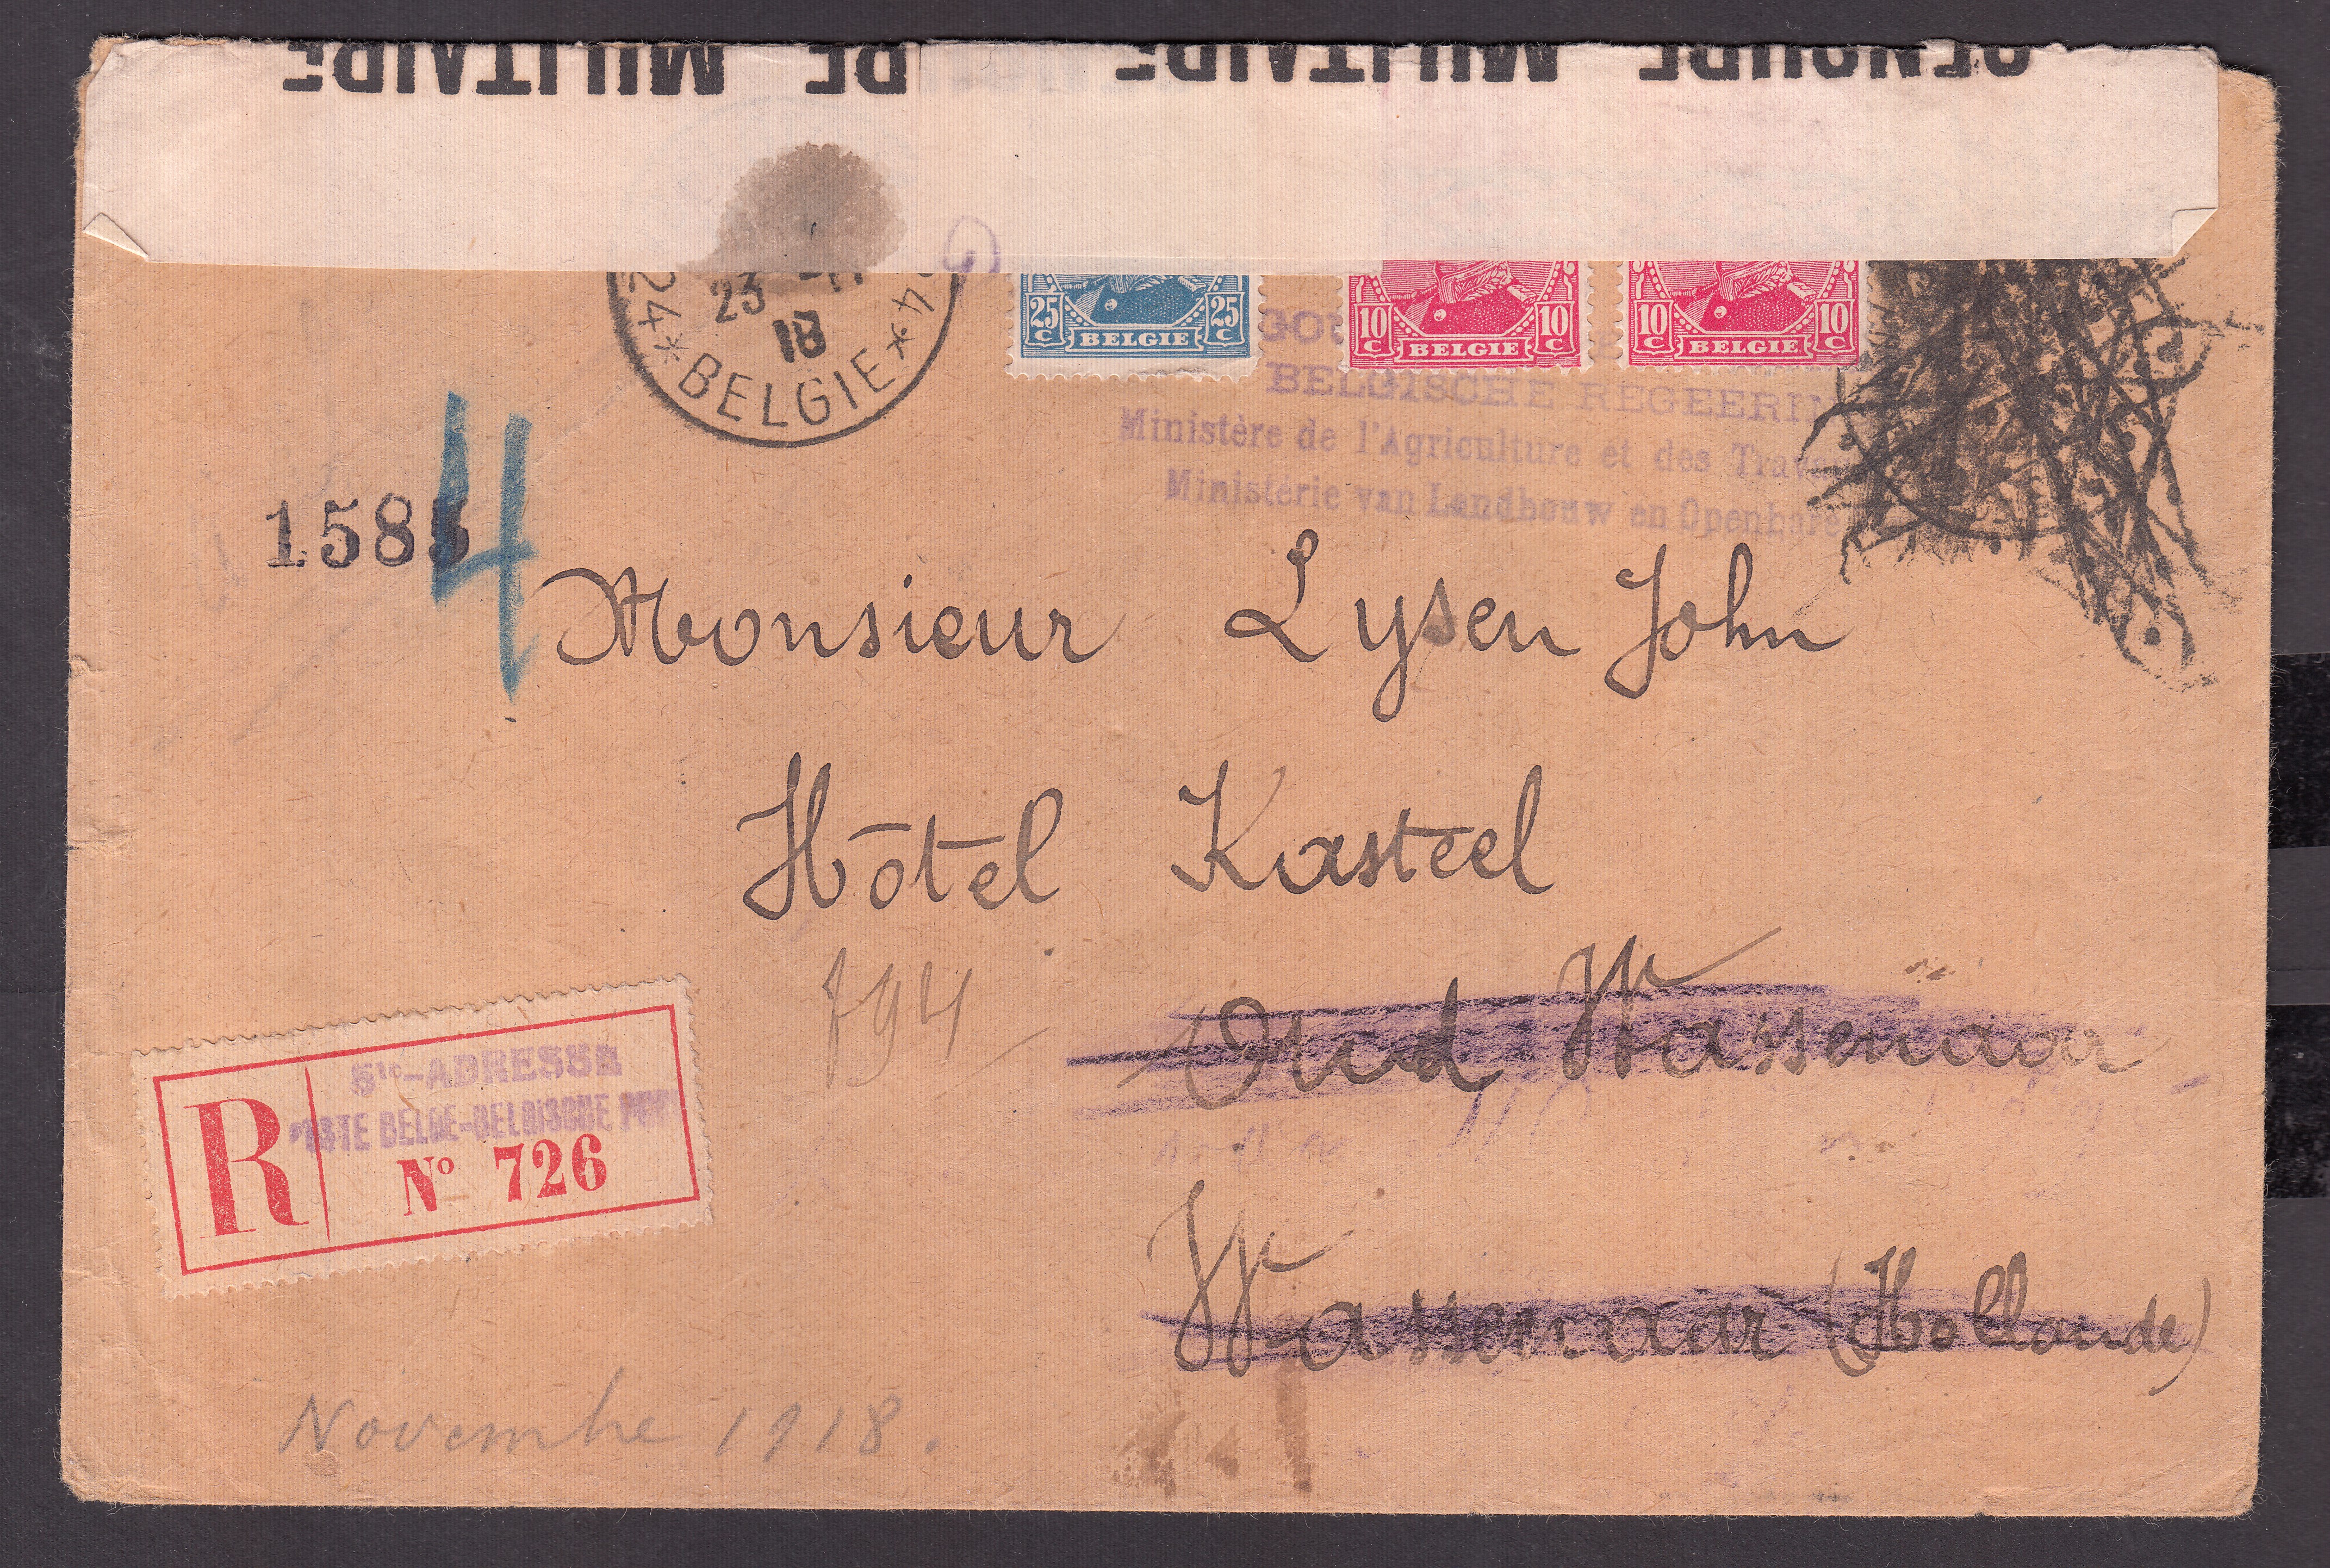 DE MILITAIRE
MILITAIRE
24 * BELGIE * 4
23 - 11
18
25 C BELGIE 25 C
10 C BELGIE 10 C
10 C BELGIE 10 C
BELGISCHE REGEERIN
Ministère de l'Agriculture et des Trava
Ministerie van Landbouw en Openbare
158
4
Monsieur Lysen John
Hôtel Kasteel
794
Oud Wassenaar
Wassenaar (Hollande)
R
Ste-ADRESSE
POSTE BELGE-BELGISCHE POST
No 726
Novembre 1918.